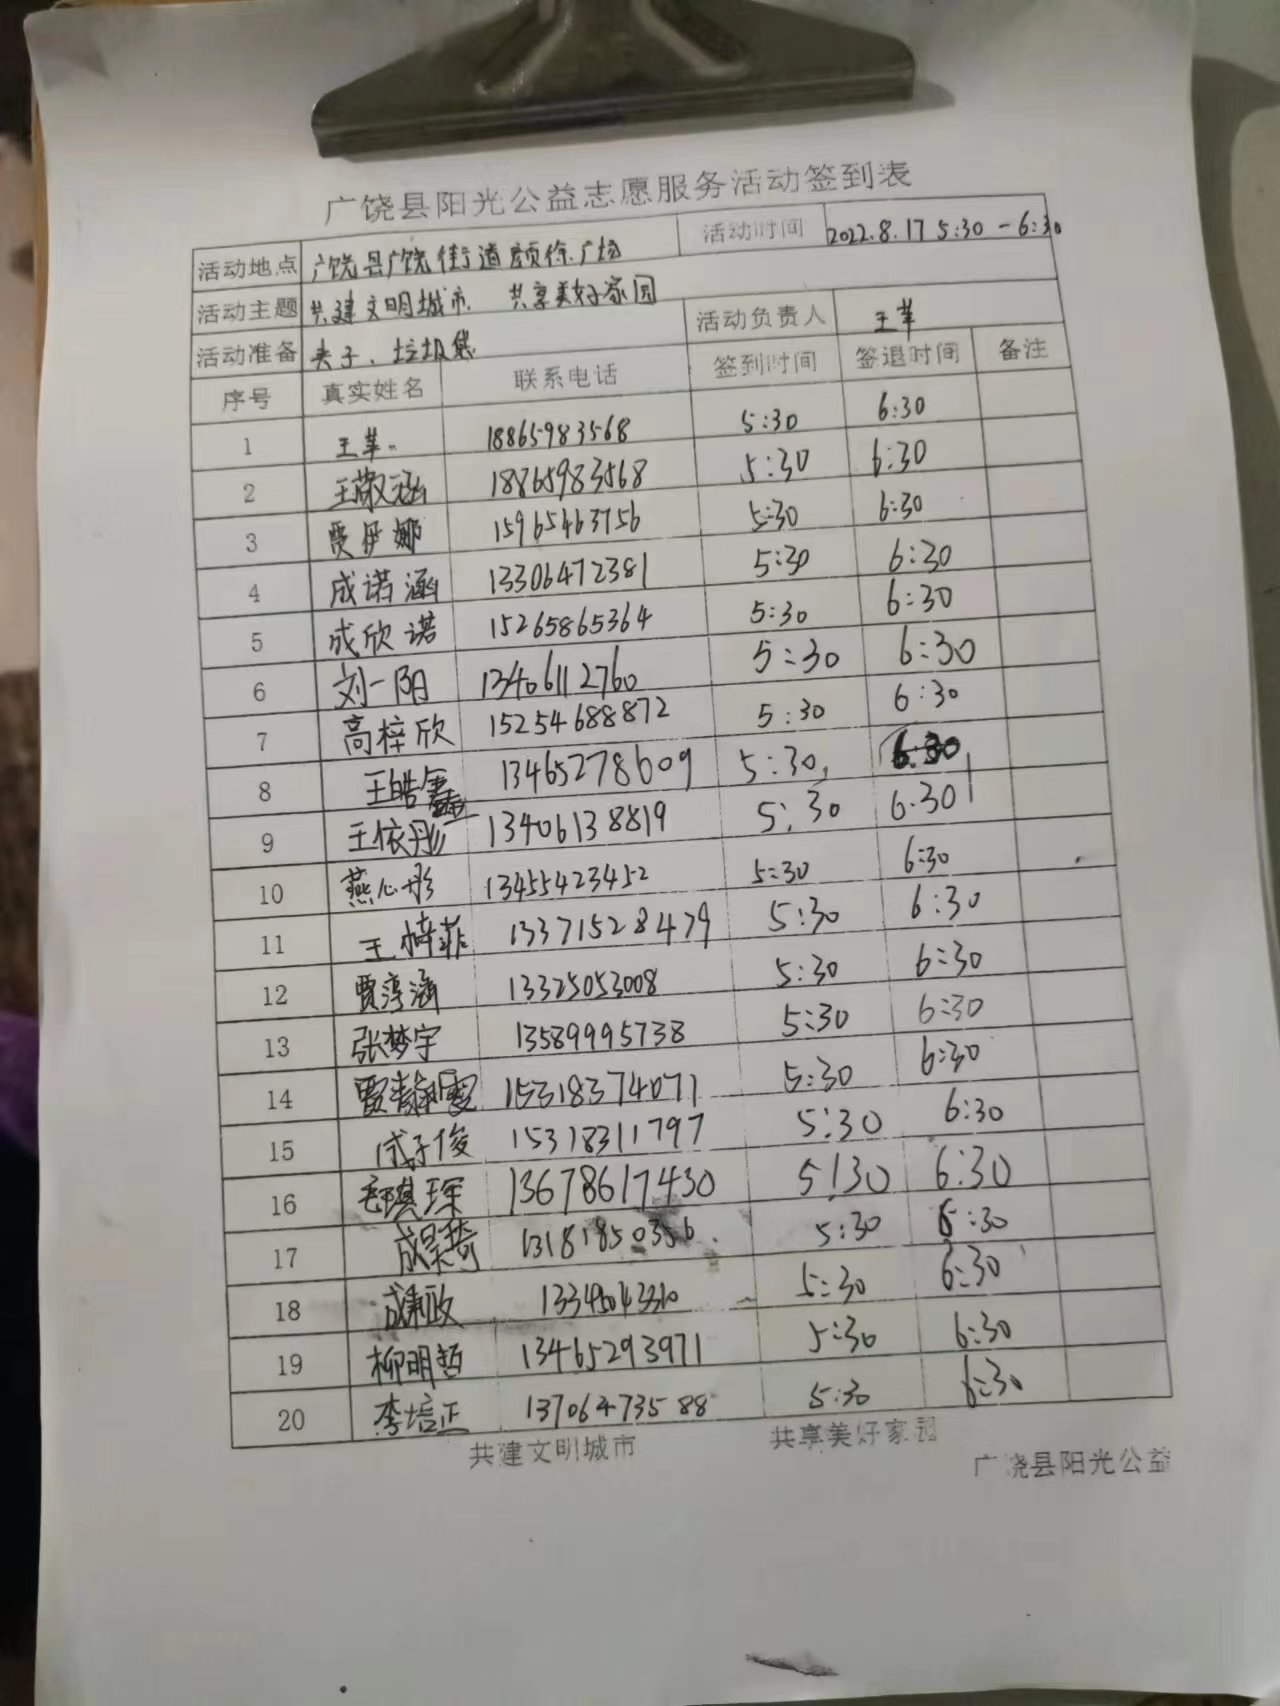 广饶县阳光公益志愿服务活动签到表
活动地点 广饶县广饶街道颜徐广场 活动时间 2022.8.17 5:30-6:30
活动主题 共建文明城市、共享美好家园
活动准备 夹子、垃圾袋 活动负责人 王苹
序号 真实姓名 联系电话 签到时间 签退时间 备注
1 王苹 18865983568 5:30 6:30
2 王敬涵 18865983568 5:30 6:30
3 贾伊娜 15965463756 5:30 6:30
4 成诺涵 13306472381 5:30 6:30
5 成欣诺 15265865364 5:30 6:30
6 刘一阳 13406112760 5:30 6:30
7 高梓欣 15254688872 5:30 6:30
8 王皓鑫 13465278609 5:30 6:30
9 王依彤 13406138819 5:30 6:30
10 燕心彤 13455423452 5:30 6:30
11 王椅菲 13371528479 5:30 6:30
12 贾淳涵 13325053008 5:30 6:30
13 张梦宇 13589995738 5:30 6:30
14 贾静雯 15318374071 5:30 6:30
15 成子俊 15318311797 5:30 6:30
16 13678617430 5:30 6:30
17 13181850356 5:30 6:30
18 5:30 6:30
19 柳明哲 13465293971 5:30 6:30
20 李培正 13706473588 5:30 6:30
共建文明城市 共享美好家园
广饶县阳光公益